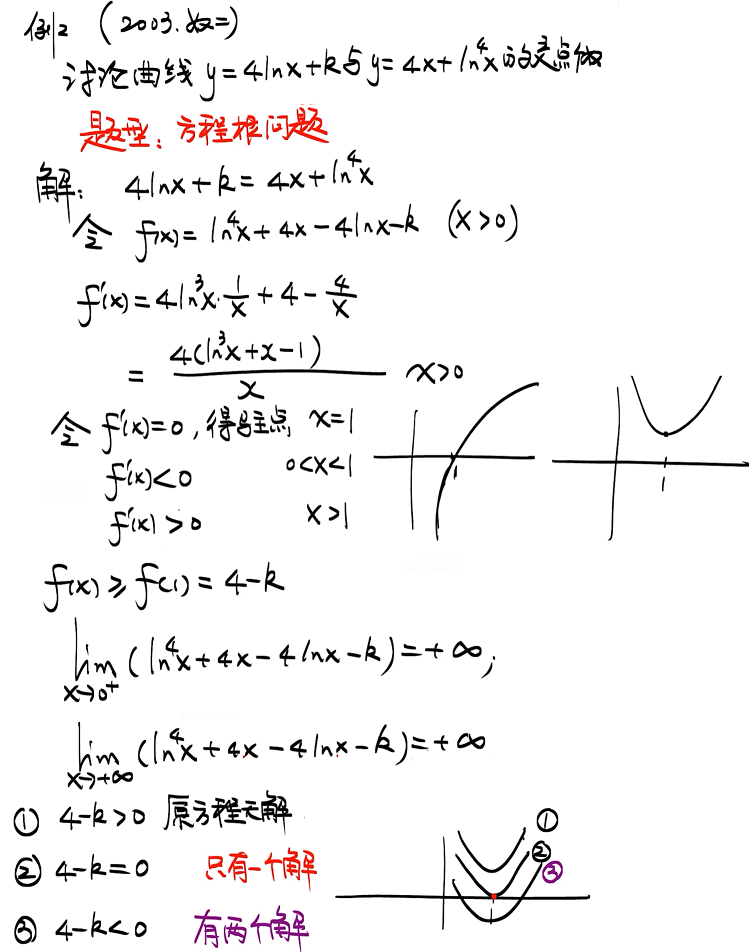 例2 (2003.数二)
讨论曲线 y=4lnx+k与y=4x+ln⁴x的交点个数
题型:方程根问题
解: 4lnx+k=4x+ln⁴x
令 f(x)=ln⁴x+4x-4lnx-k (x>0)
f'(x)=4ln³x·1/x+4-4/x
=4(ln³x+x-1)/x x>0
令 f'(x)=0,得驻点 x=1
f'(x)<0 0<x<1
f'(x)>0 x>1
1
1
f(x)≥f(1)=4-k
lim x→0⁺ (ln⁴x+4x-4lnx-k)=+∞;
lim x→+∞ (ln⁴x+4x-4lnx-k)=+∞
① 4-k>0 原方程无解
② 4-k=0 只有一个解
③ 4-k<0 有两个解
①
②
③
1